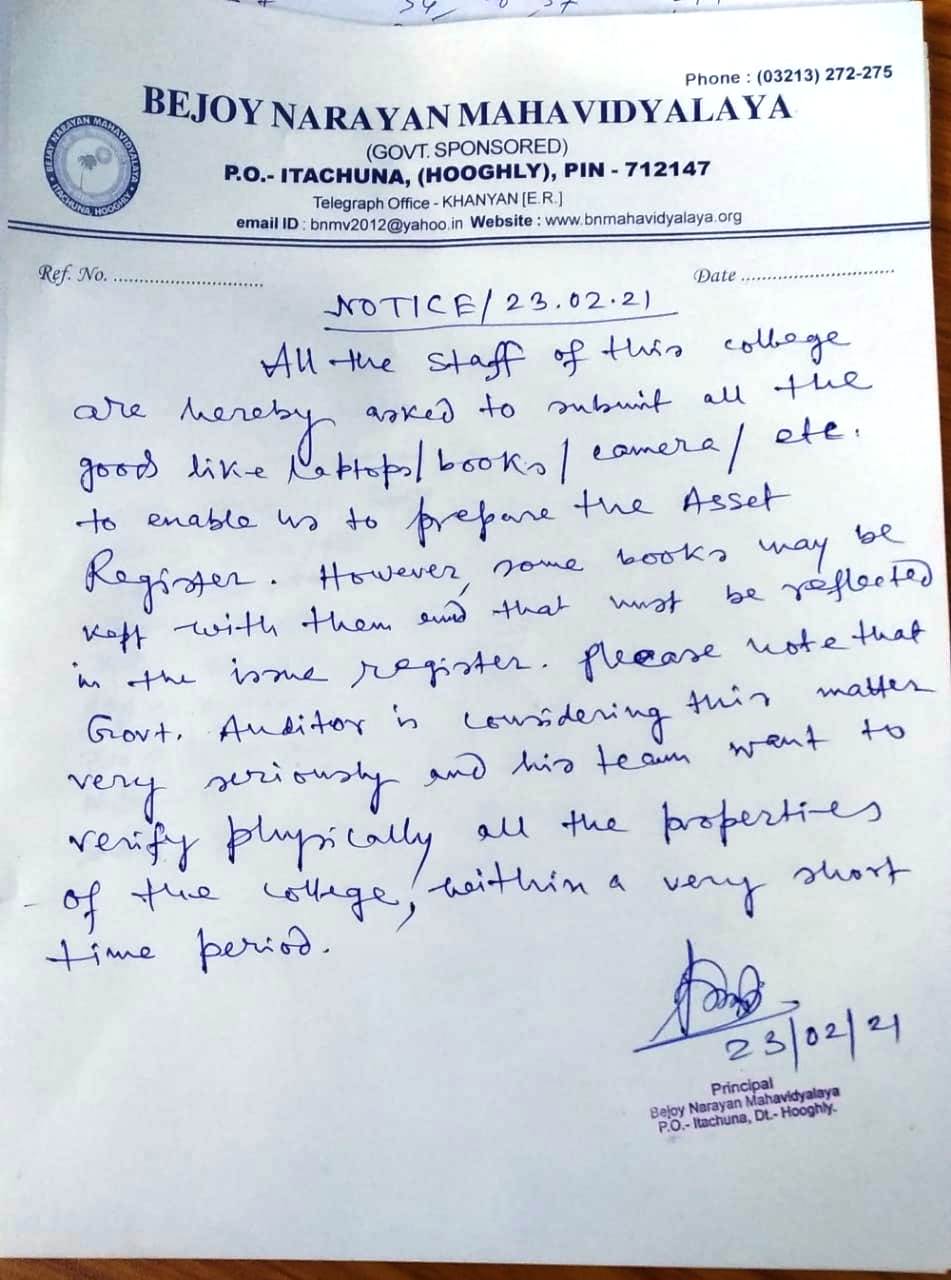 Phone : (03213) 272-275
BEJOY NARAYAN MAHAVIDYALAYA
(GOVT. SPONSORED)
P.O.- ITACHUNA, (HOOGHLY), PIN - 712147
Telegraph Office - KHANYAN [E.R.]
email ID : bnmv2012@yahoo.in Website : www.bnmahavidyalaya.org
BEJOY NARAYAN MAHAVIDYALAYA
ITACHUNA, HOOGHLY
Ref. No. ............................
Date ............................
NOTICE/23.02.21
All the staff of this college
are hereby asked to submit all the
good like Laptops/books/camera/etc.
to enable us to prepare the Asset
Register. However, some books may be
kept with them and that must be reflected
in the issue register. please note that
Govt. Auditor is considering this matter
very seriously and his team want to
verify physically all the properties
of the college, within a very short
time period.
23/02/21
Principal
Bejoy Narayan Mahavidyalaya
P.O.- Itachuna, Dt.- Hooghly.